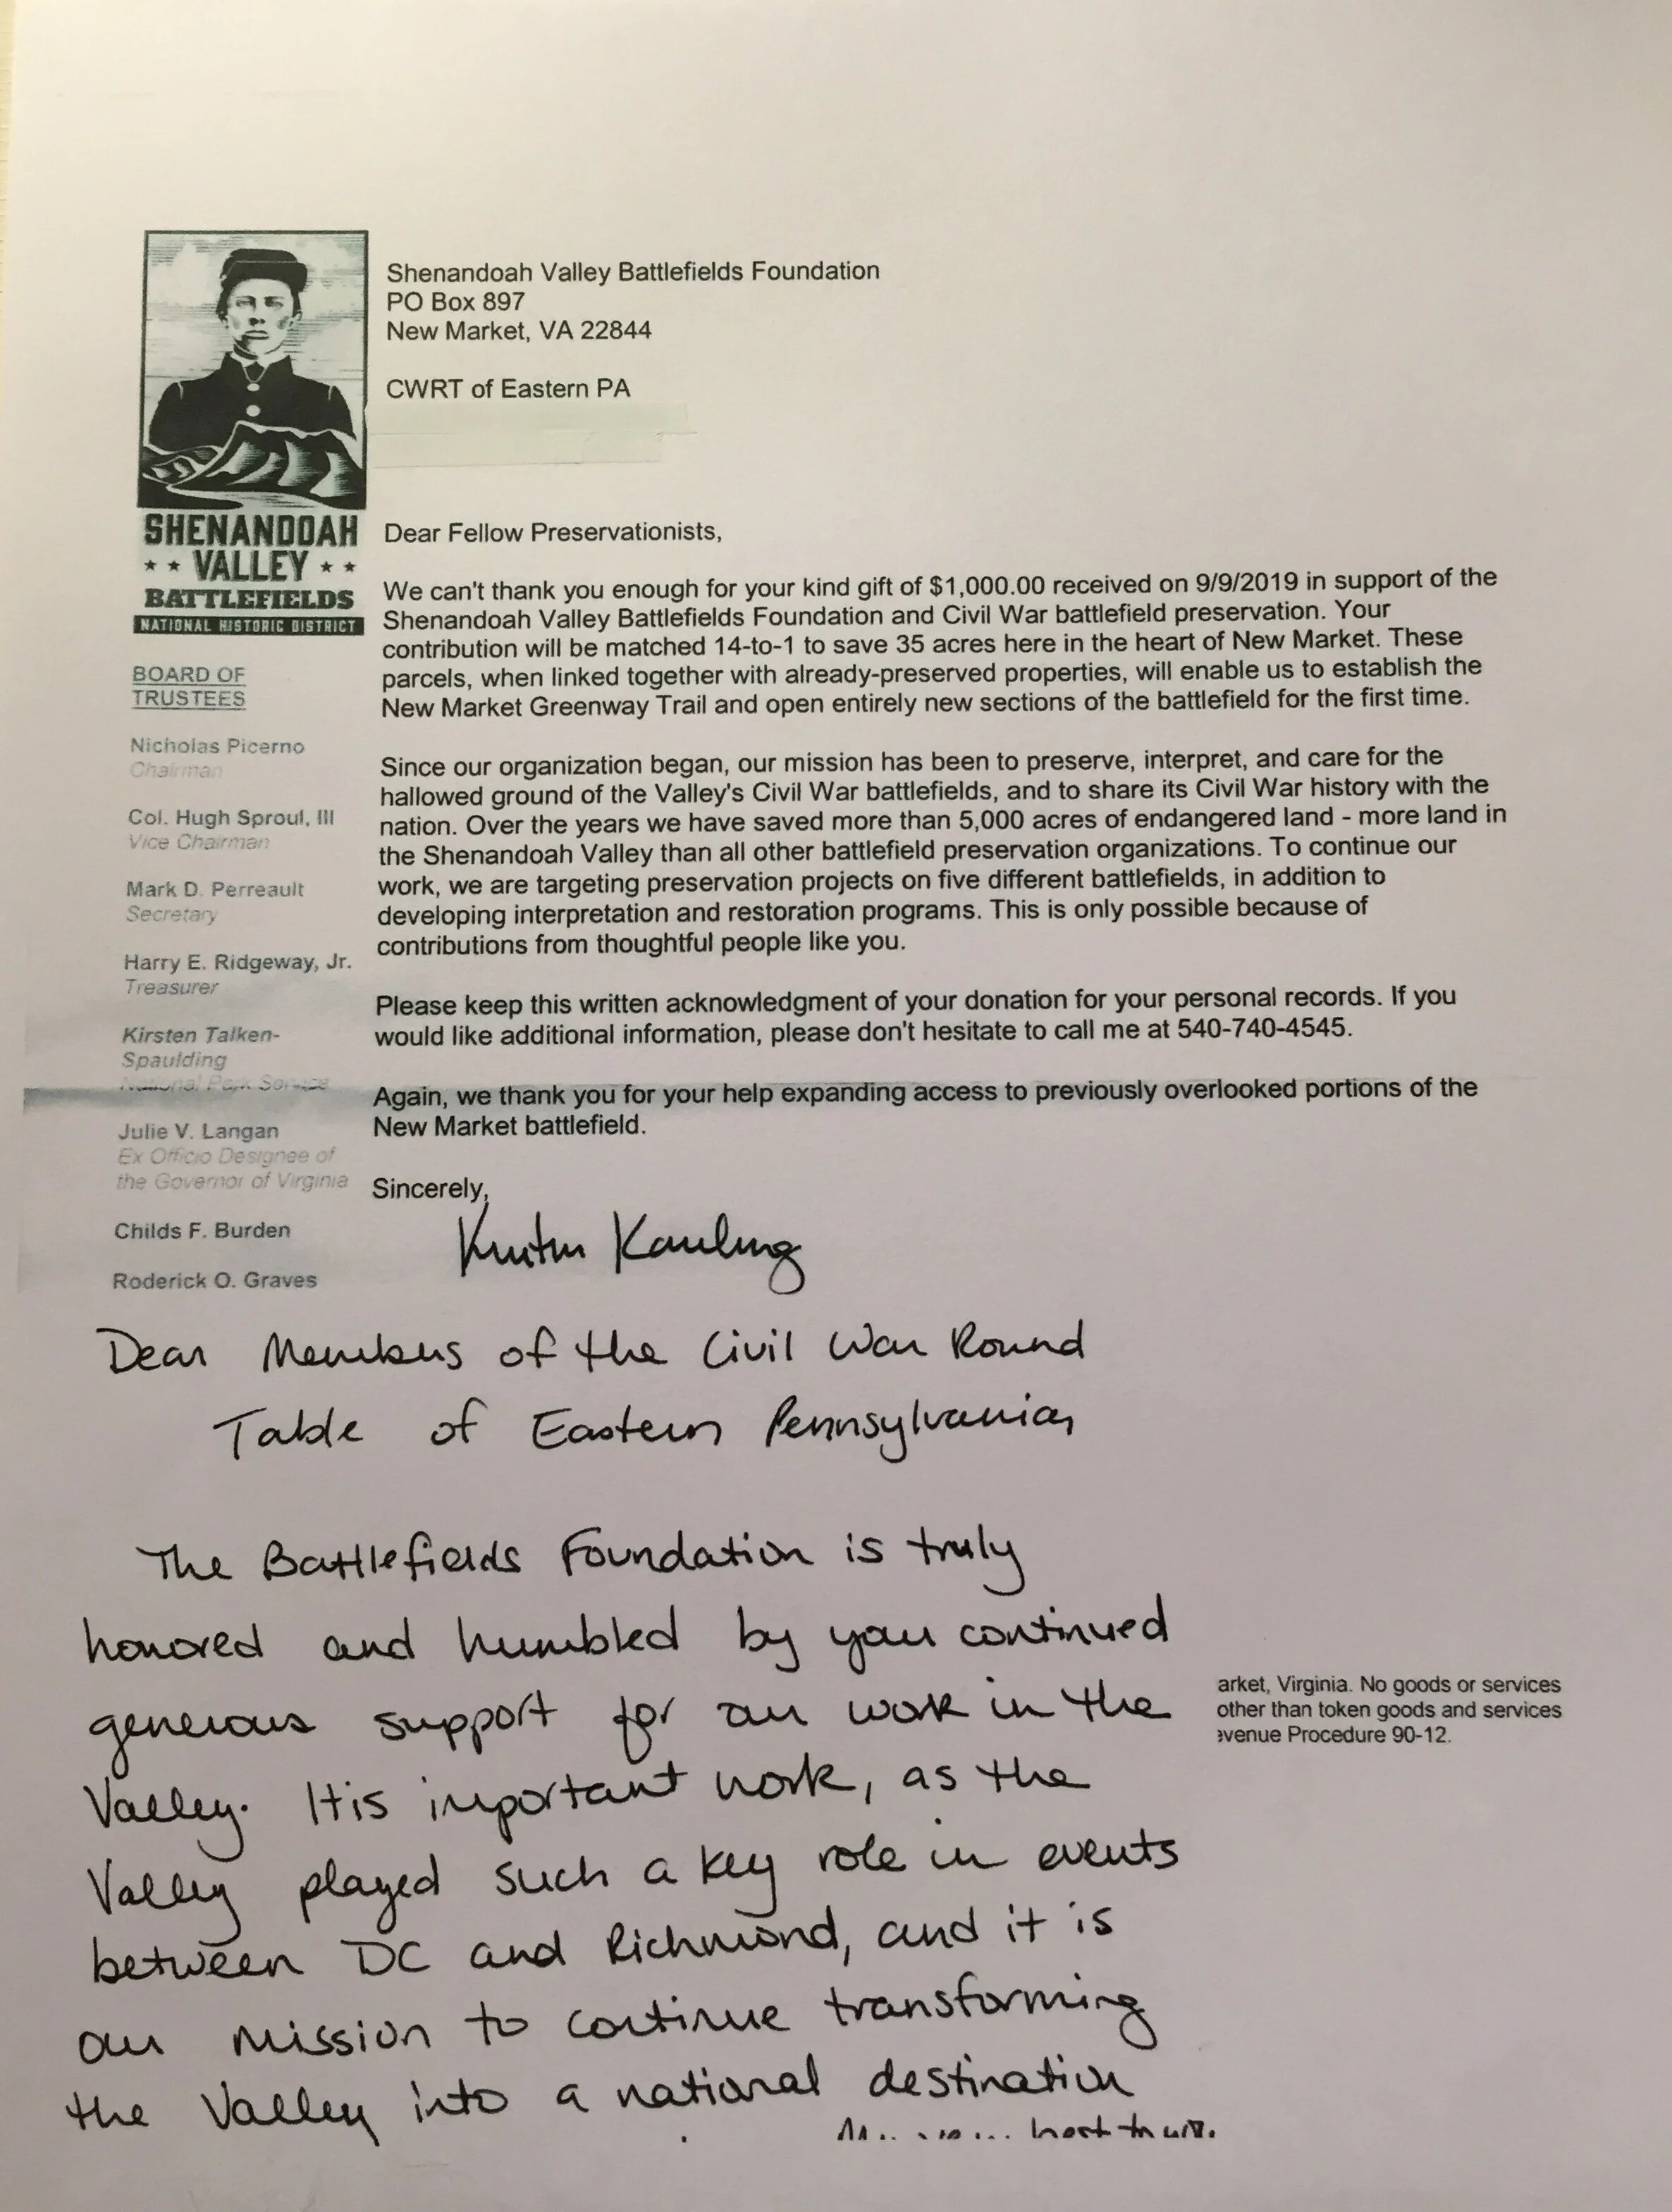 Shenandoah Valley Battlefields Foundation
PO Box 897
New Market, VA 22844
CWRT of Eastern PA
SHENANDOAH
VALLEY
BATTLEFIELDS
NATIONAL HISTORIC DISTRICT
BOARD OF
TRUSTEES
Nicholas Picerno
Chairman
Col. Hugh Sproul, III
Vice Chairman
Mark D. Perreault
Secretary
Harry E. Ridgeway, Jr.
Treasurer
Kirsten Talken-
Spaulding
National Park Service
Julie V. Langan
Ex Officio Designee of
the Governor of Virginia
Childs F. Burden
Roderick O. Graves
Dear Fellow Preservationists,
We can't thank you enough for your kind gift of $1,000.00 received on 9/9/2019 in support of the
Shenandoah Valley Battlefields Foundation and Civil War battlefield preservation. Your
contribution will be matched 14-to-1 to save 35 acres here in the heart of New Market. These
parcels, when linked together with already-preserved properties, will enable us to establish the
New Market Greenway Trail and open entirely new sections of the battlefield for the first time.
Since our organization began, our mission has been to preserve, interpret, and care for the
hallowed ground of the Valley's Civil War battlefields, and to share its Civil War history with the
nation. Over the years we have saved more than 5,000 acres of endangered land - more land in
the Shenandoah Valley than all other battlefield preservation organizations. To continue our
work, we are targeting preservation projects on five different battlefields, in addition to
developing interpretation and restoration programs. This is only possible because of
contributions from thoughtful people like you.
Please keep this written acknowledgment of your donation for your personal records. If you
would like additional information, please don't hesitate to call me at 540-740-4545.
Again, we thank you for your help expanding access to previously overlooked portions of the
New Market battlefield.
Sincerely,
Dear Members of the Civil War Round
Table of Eastern Pennsylvania,
The Battlefields Foundation is truly
honored and humbled by your continued
generous support for our work in the
Valley. It is important work, as the
Valley played such a key role in events
between DC and Richmond, and it is
our mission to continue transforming
the Valley into a national destination
arket, Virginia. No goods or services
other than token goods and services
evenue Procedure 90-12.